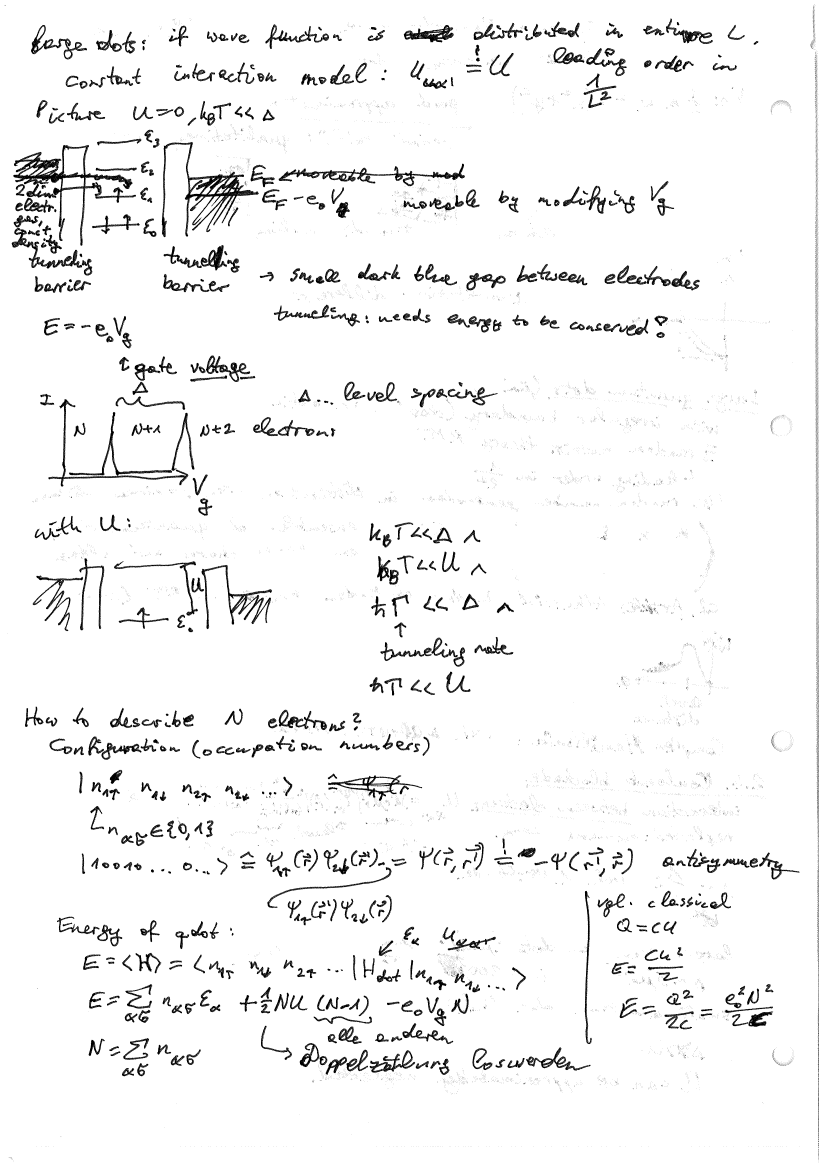 Large dots: if wave function is distributed in entire L.
constant interaction model: U_{αα'} =! U leading order in 1/L²
Picture U=0, k_BT << Δ
ε₃
ε₂
ε₁
ε₀
2 dim electr. gas, const density
E_F moveable by mod
E_F - e₀V_g moveable by modifying V_g
tunneling barrier
tunneling barrier
→ small dark blue gap between electrodes
tunneling: needs energy to be conserved!
E = -e₀V_g
↑ gate voltage
Δ
Δ... level spacing
I
N N+1 N+2 electrons
V_g
with U:
U
ε₀
k_BT << Δ ∧
k_BT << U ∧
ħΓ << Δ ∧
↑
tunneling rate
ħΓ << U
How to describe N electrons?
Configuration (occupation numbers)
|n_{1↑} n_{1↓} n_{2↑} n_{2↓} ...> ≙ Ψ_{1↑}(r
n_{ασ} ∈ {0,1}
|10010...0...> ≙ Ψ_{1↑}(r⃗) Ψ_{2↓}(r⃗') - = Ψ(r⃗, r⃗') =! -Ψ(r⃗', r⃗) antisymmetry
Ψ_{1↑}(r⃗') Ψ_{2↓}(r⃗)
Energy of qdot:
ε_α U_{αα'}
E = <H> = <n_{1↑} n_{1↓} n_{2↑} ... |H_dot| n_{1↑} n_{1↓} ...>
E = Σ_{ασ} n_{ασ} ε_α + ½NU (N-1) - e₀V_gN
alle anderen
N = Σ_{ασ} n_{ασ}
↳ Doppelzählung loswerden
vgl. classical
Q = CU
E = CU²/2
E = Q²/2C = e₀²N²/2C